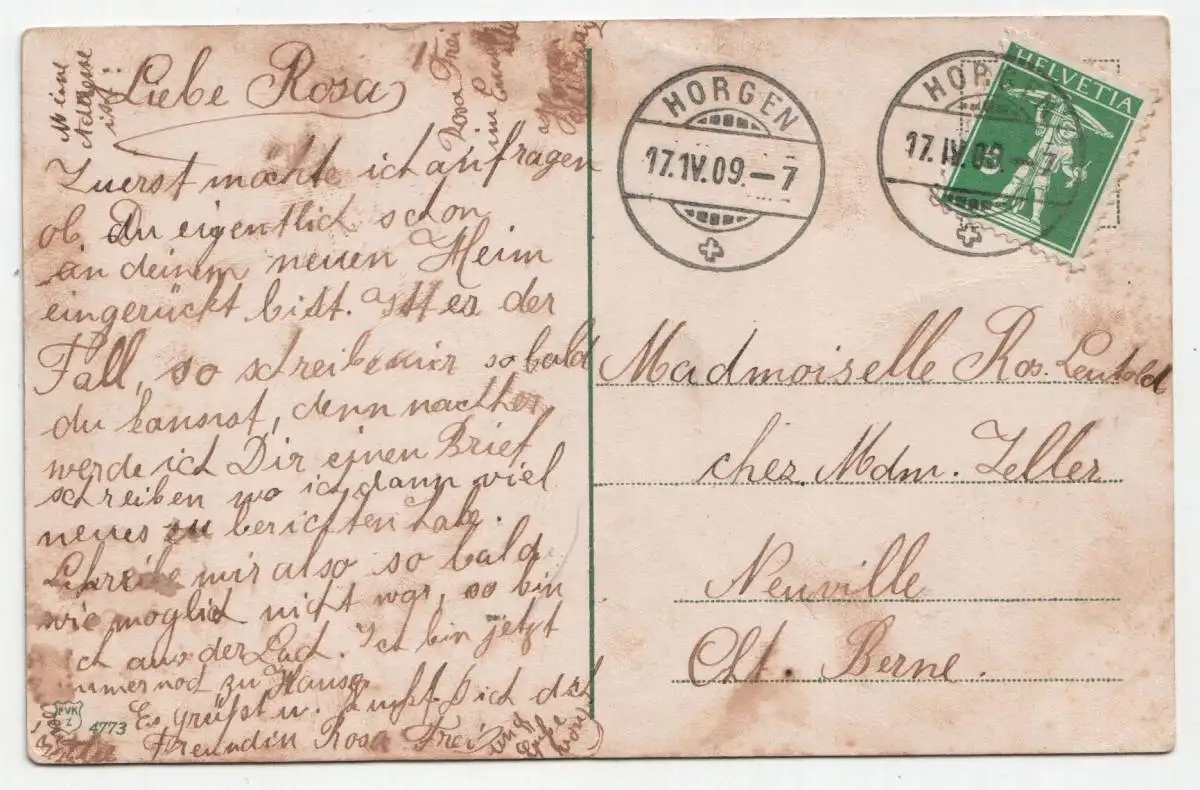 Meine
Adresse
ist:
Rosa Frei
im
Liebe Rosa
Zuerst möchte ich anfragen
ob Du eigentlich schon
an deinem neuen Heim
eingerückt bist. Ist es der
Fall, so schreibe mir so bald
du kannst, denn nachher
werde ich Dir einen Brief
schreiben wo ich dann viel
neues zu berichten habe.
Schreibe mir also so bald
wie möglich nicht war, so bin
ich aus der
Ich bin jetzt
immer noch zu Hause
Es grüßt u. küsst Dich
Freundin Rosa Frei
PVK
Z
4773
HORGEN
17.IV.09.-7
HORGEN
17.IV.09.-7
HELVETIA
5
Madmoiselle Ros. Leutold
chez. Mdm. Zeller
Neuville
Ct. Berne.